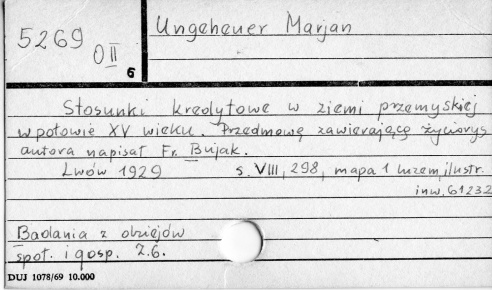 5269
O II
6
Ungeheuer Marjan
Stosunki kredytowe w ziemi przemyskiej
w połowie XV wieku. Przedmowę zawierającą życiorys
autora napisał Fr. Bujak.
Lwów 1929 s. VIII, 298, mapa 1 luzem, ilustr.
inw. 61232
Badania z dziejów
społ. i gosp. Z.6.
DUJ 1078/69 10.000